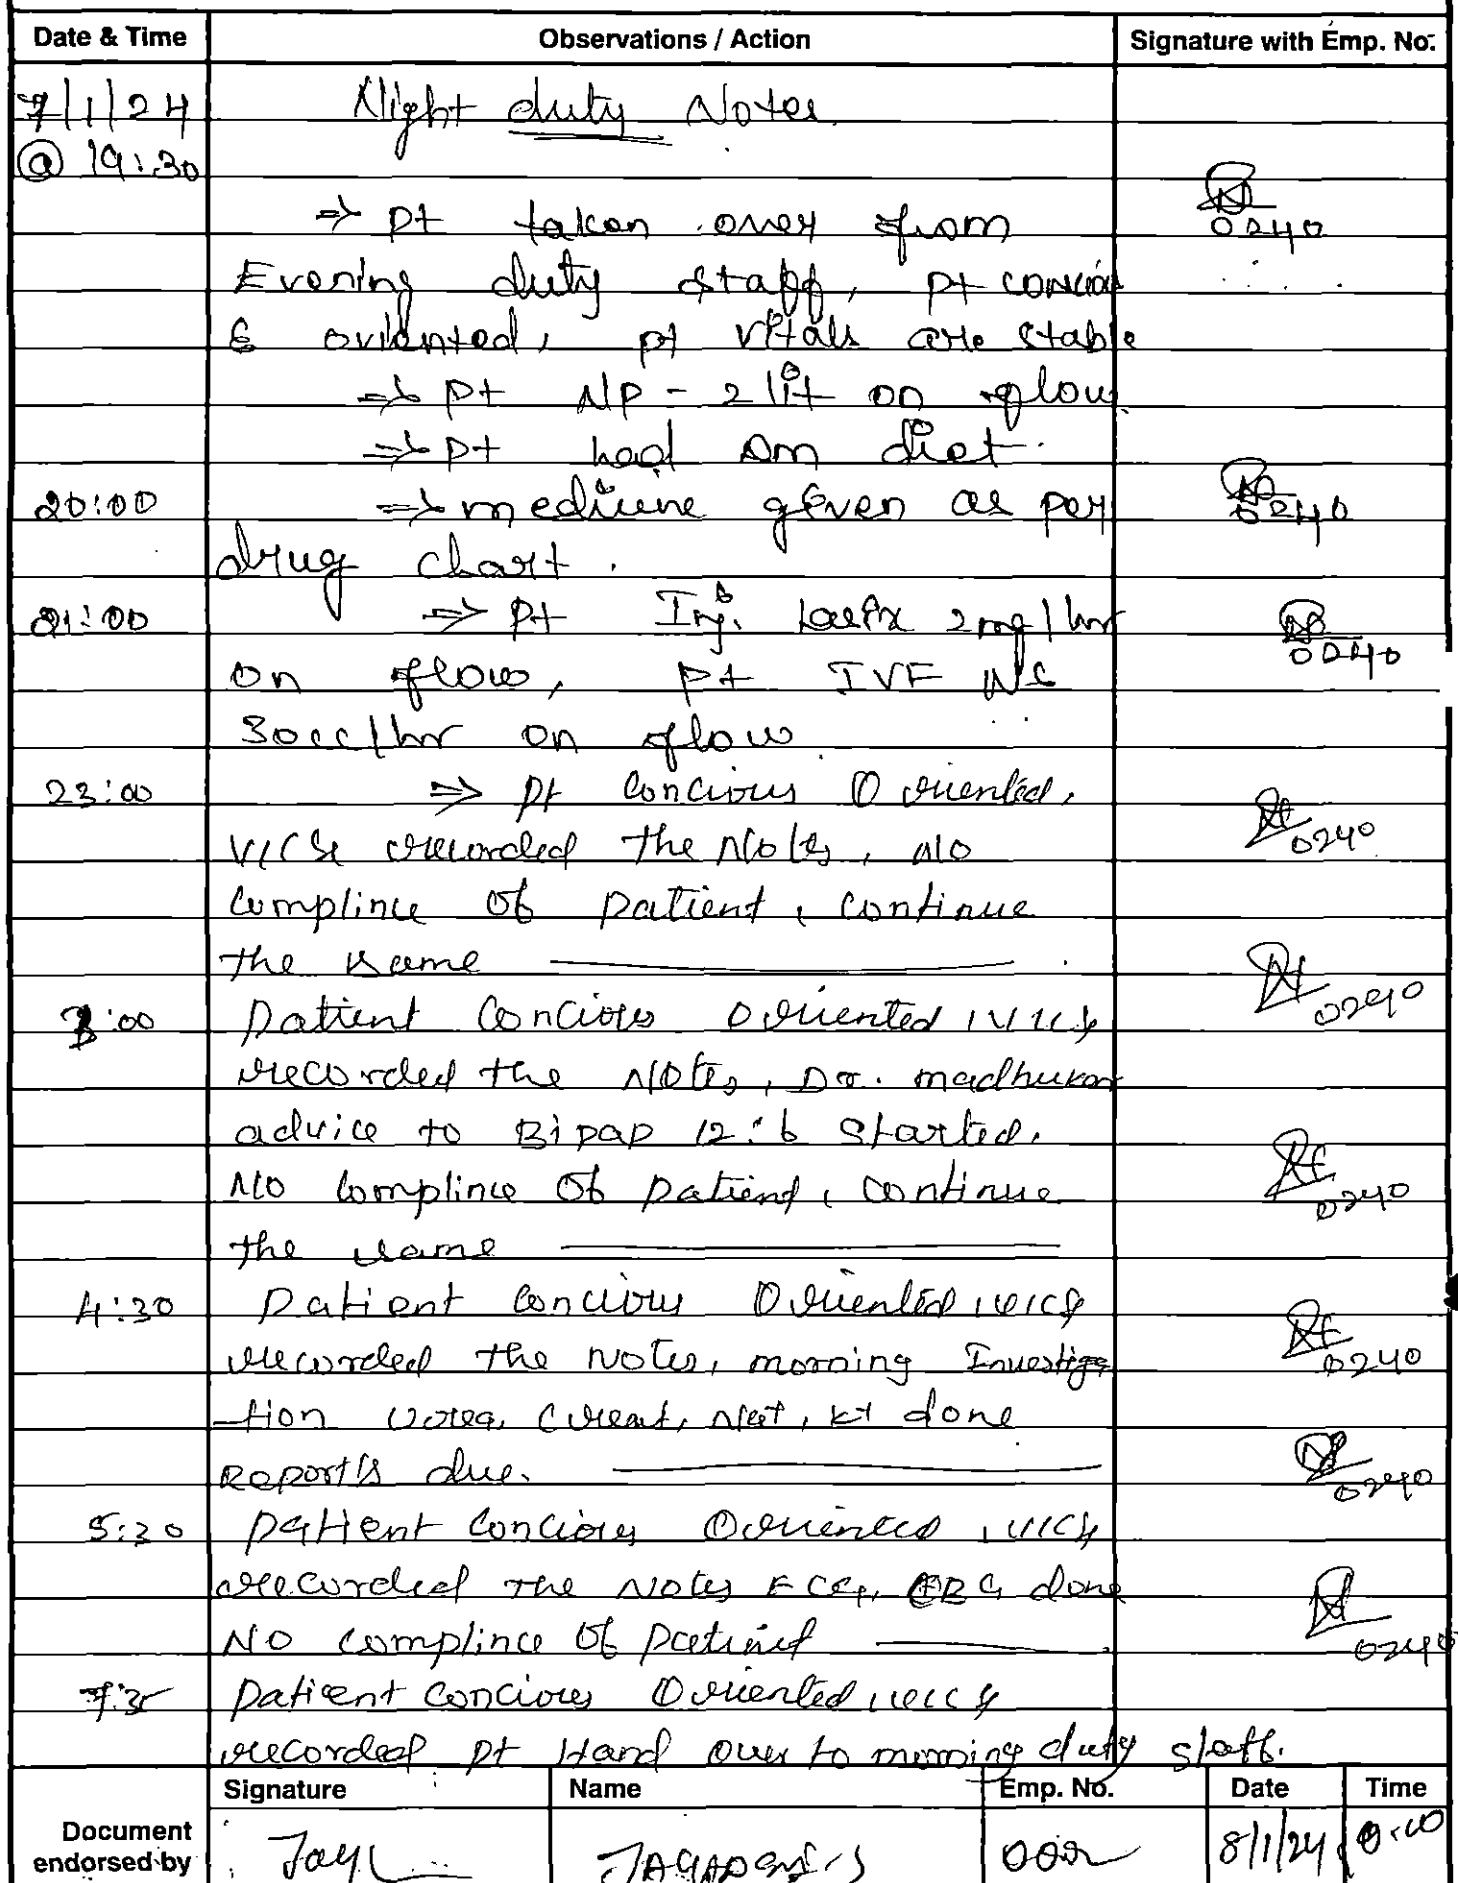 Date & Time Observations / Action Signature with Emp. No.
7/1/24 Night duty Notes
@ 19:30
⇒ pt taken over from 0240
Evening duty staff, pt conciou
& orianted, pt vitals are stable
⇒ pt N/P - 2 lit on flow
⇒ pt had Dm diet.
20:00 ⇒ medicine given as per 0240
drug chart.
21:00 ⇒ pt Inj. lasix 2mg/hr 0240
on flow, pt IVF NS
30cc/hr on flow
23:00 ⇒ pt Concious Oriented, 0240
recorded the Notes, No
complince of patient, continue
the same
3:00 patient Concious oriented, 0240
recorded the Notes, Dr. madhukar
advice to Bipap 12:6 started.
No complince of patient, continue 0240
the same
4:30 patient Concious Oriented,
recorded the Notes, morning Investiga 0240
-tion urea, Creat, Na+, k+ done
Reports due. 0240
5:30 patient Concious Oriented,
recorded the Notes ECG, done
No complince of patient 0240
patient concious Oriented,
recorded pt Hand over to morning duty staff.
Signature Name Emp. No. Date Time
Document
endorsed by 8/1/24